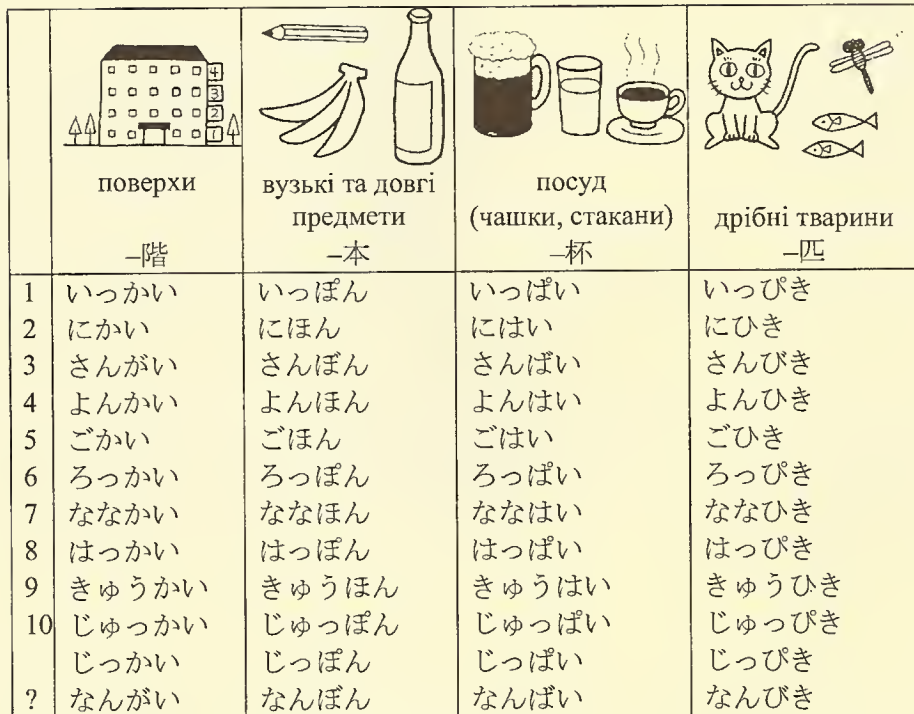 4
3
2
1
поверхи
–階
вузькі та довгі
предмети
–本
посуд
(чашки, стакани)
–杯
дрібні тварини
–匹
1 いっかい いっぽん いっぱい いっぴき
2 にかい にほん にはい にひき
3 さんがい さんぼん さんばい さんびき
4 よんかい よんほん よんはい よんひき
5 ごかい ごほん ごはい ごひき
6 ろっかい ろっぽん ろっぱい ろっぴき
7 ななかい ななほん ななはい ななひき
8 はっかい はっぽん はっぱい はっぴき
9 きゅうかい きゅうほん きゅうはい きゅうひき
10 じゅっかい じゅっぽん じゅっぱい じゅっぴき
じっかい じっぽん じっぱい じっぴき
? なんがい なんぼん なんばい なんびき